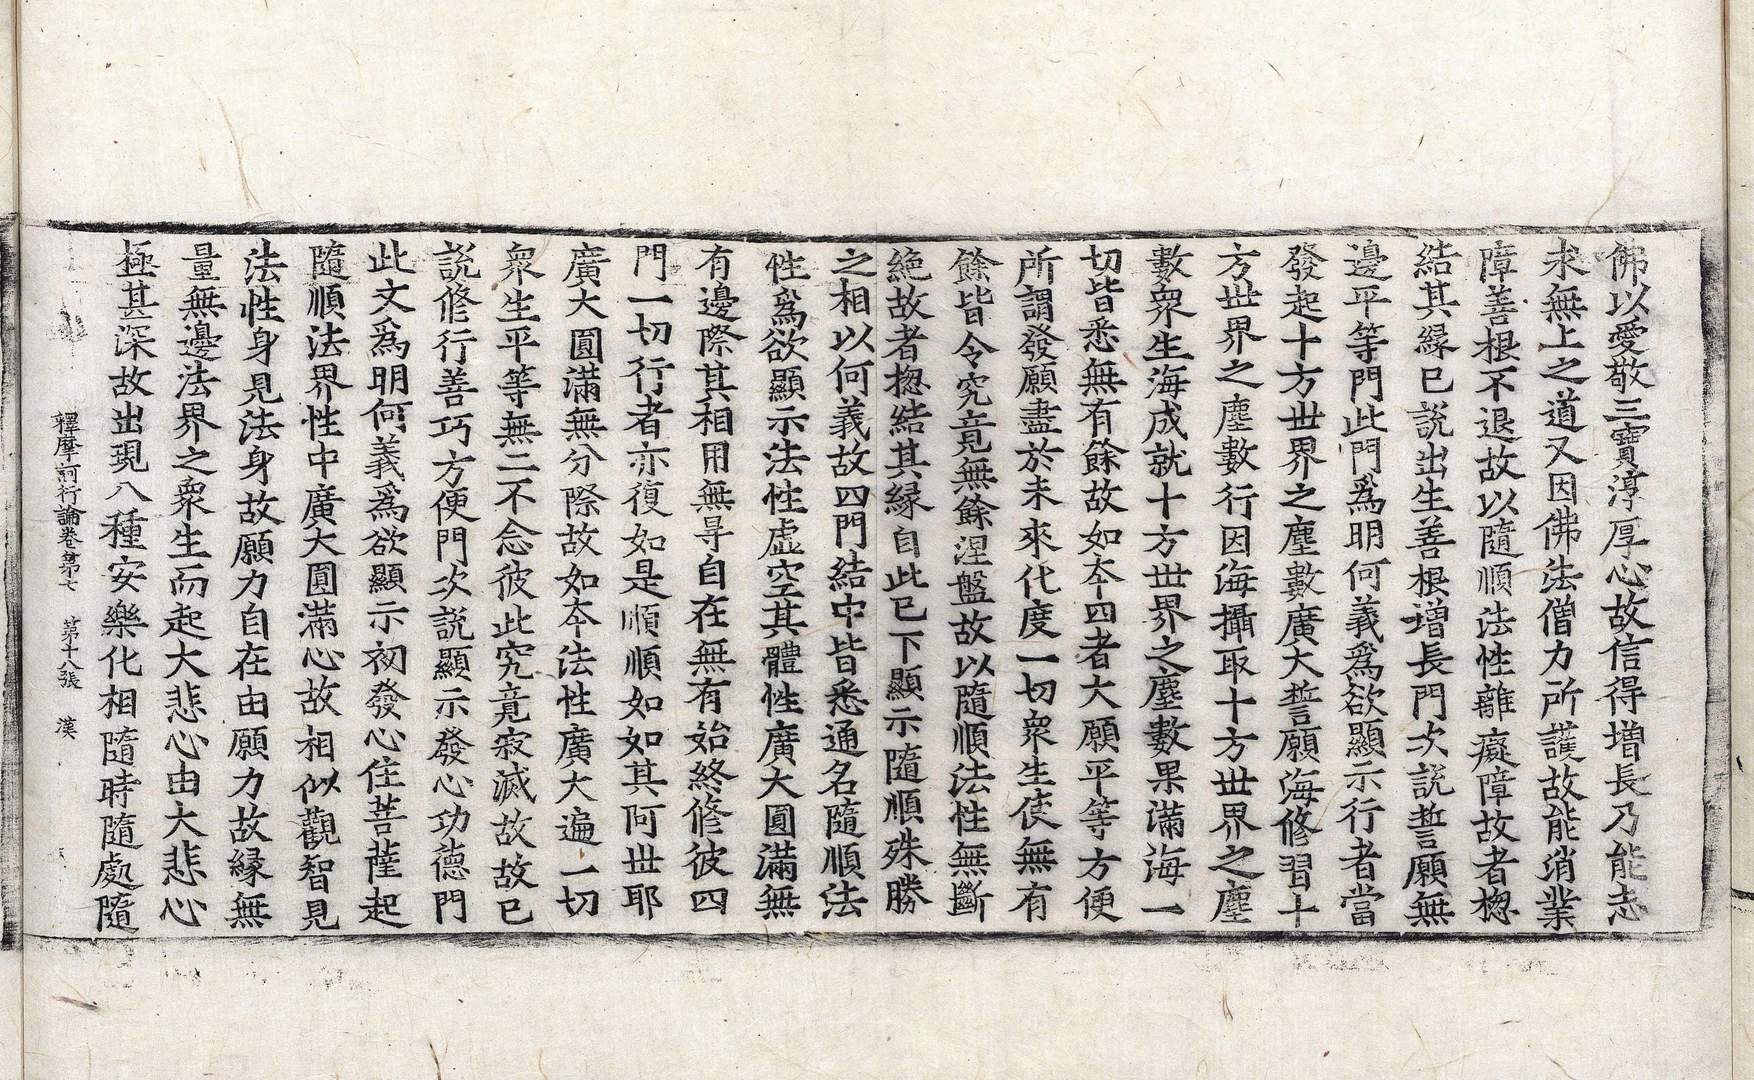 佛以愛敬三寶淳厚心故信得增長乃能志
求無上之道又因佛法僧力所護故能消業
障善根不退故以隨順法性離癡障故者揔
結其縁已說出生善根增長門次說誓願無
邊平等門此門爲明何義爲欲顯示行者當
發起十方世界之塵數廣大誓願海修習十
方世界之塵數行因海攝取十方世界之塵
數衆生海成就十方世界之塵數果滿海一
切皆悉無有餘故如夲四者大願平等方便
所謂發願盡於未來化度一切衆生使無有
餘皆令究竟無餘涅盤故以隨順法性無斷
絶故者揔結其縁自此已下顯示隨順殊勝
之相以何義故四門結中皆悉通名隨順法
性爲欲顯示法性虚空其體性廣大圓滿無
有邊際其相用無㝵自在無有始終修彼四
門一切行者亦復如是順順如如其阿世耶
廣大圓滿無分際故如夲法性廣大遍一切
衆生平等無二不念彼此究竟寂滅故故已
說修行善巧方便門次說顯示發心功德門
此文爲明何義爲欲顯示初發心住菩薩起
隨順法界性中廣大圓滿心故相似觀智見
法性身見法身故願力自在由願力故縁無
量無邊法界之衆生而起大悲心由大悲心
極甚深故出現八種安樂化相隨時隨處隨
釋摩訶衍論卷第七 第十八張 漢